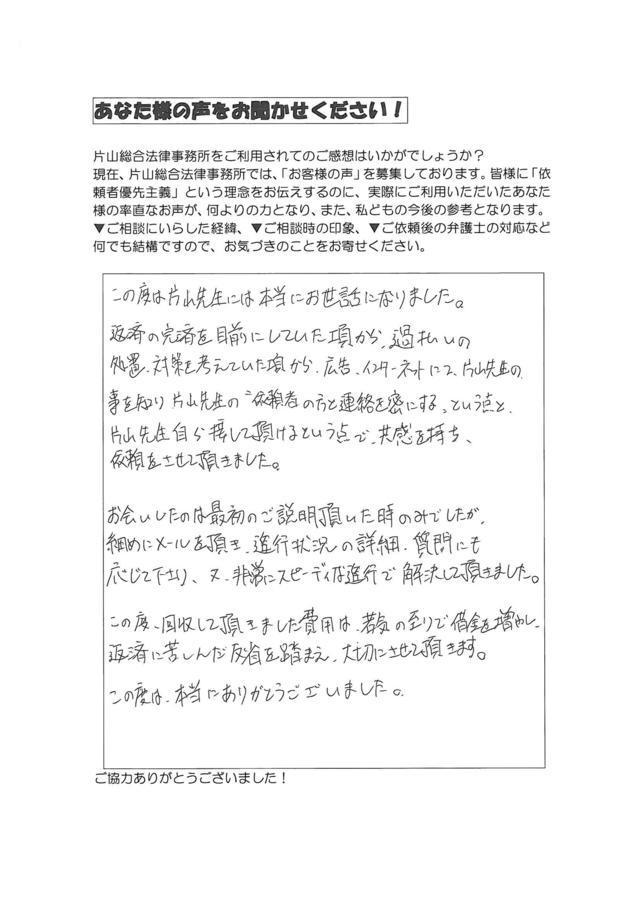 あなた様の声をお聞かせください！
片山総合法律事務所をご利用されてのご感想はいかがでしょうか？
現在、片山総合法律事務所では、「お客様の声」を募集しております。皆様に「依
頼者優先主義」という理念をお伝えするのに、実際にご利用いただいたあなた
様の率直なお声が、何よりの力となり、また、私どもの今後の参考となります。
▼ご相談にいらした経緯、▼ご相談時の印象、▼ご依頼後の弁護士の対応など
何でも結構ですので、お気づきのことをお寄せください。
この度は片山先生には本当にお世話になりました。
返済の完済を目前にしていた頃から、過払いの
処置、対策を考えていた頃から、広告、インターネットにて、片山先生の
事を知り片山先生の"依頼者の方と連絡を密にする"という点と、
片山先生自ら接して頂けるという点で、共感を持ち、
依頼をさせて頂きました。
お会いしたのは最初のご説明頂いた時のみでしたが、
細めにメールを頂き、進行状況の詳細、質問にも
応じて下さり、又、非常にスピーディな進行で解決して頂きました。
この度、回収して頂きました費用は、若気の至りで借金を増やし、
返済に苦しんだ反省を踏まえ、大切にさせて頂きます。
この度は、本当にありがとうございました。
ご協力ありがとうございました！